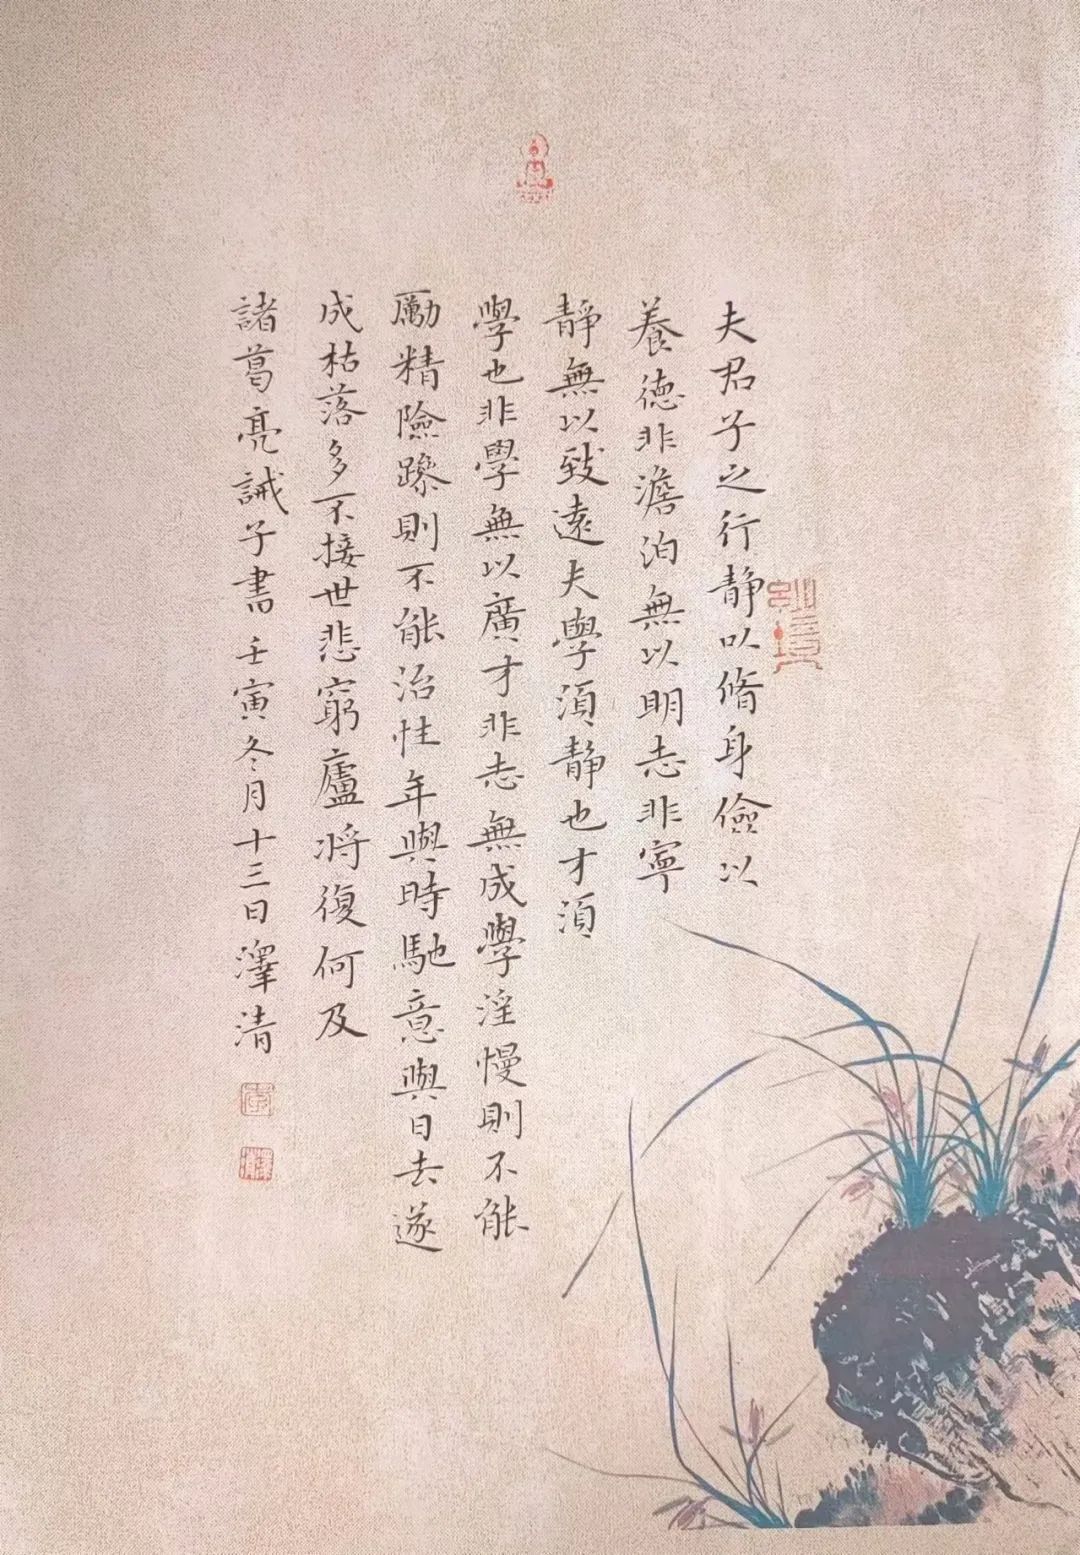 夫君子之行静以脩身儉以
養德非澹泊無以明志非寧
靜無以致遠夫學須靜也才須
學也非學無以廣才非志無成學淫慢則不能
勵精險躁則不能治性年與時馳意與日去遂
成枯落多不接世悲窮廬將復何及
諸葛亮誡子書 壬寅冬月十三日澤清